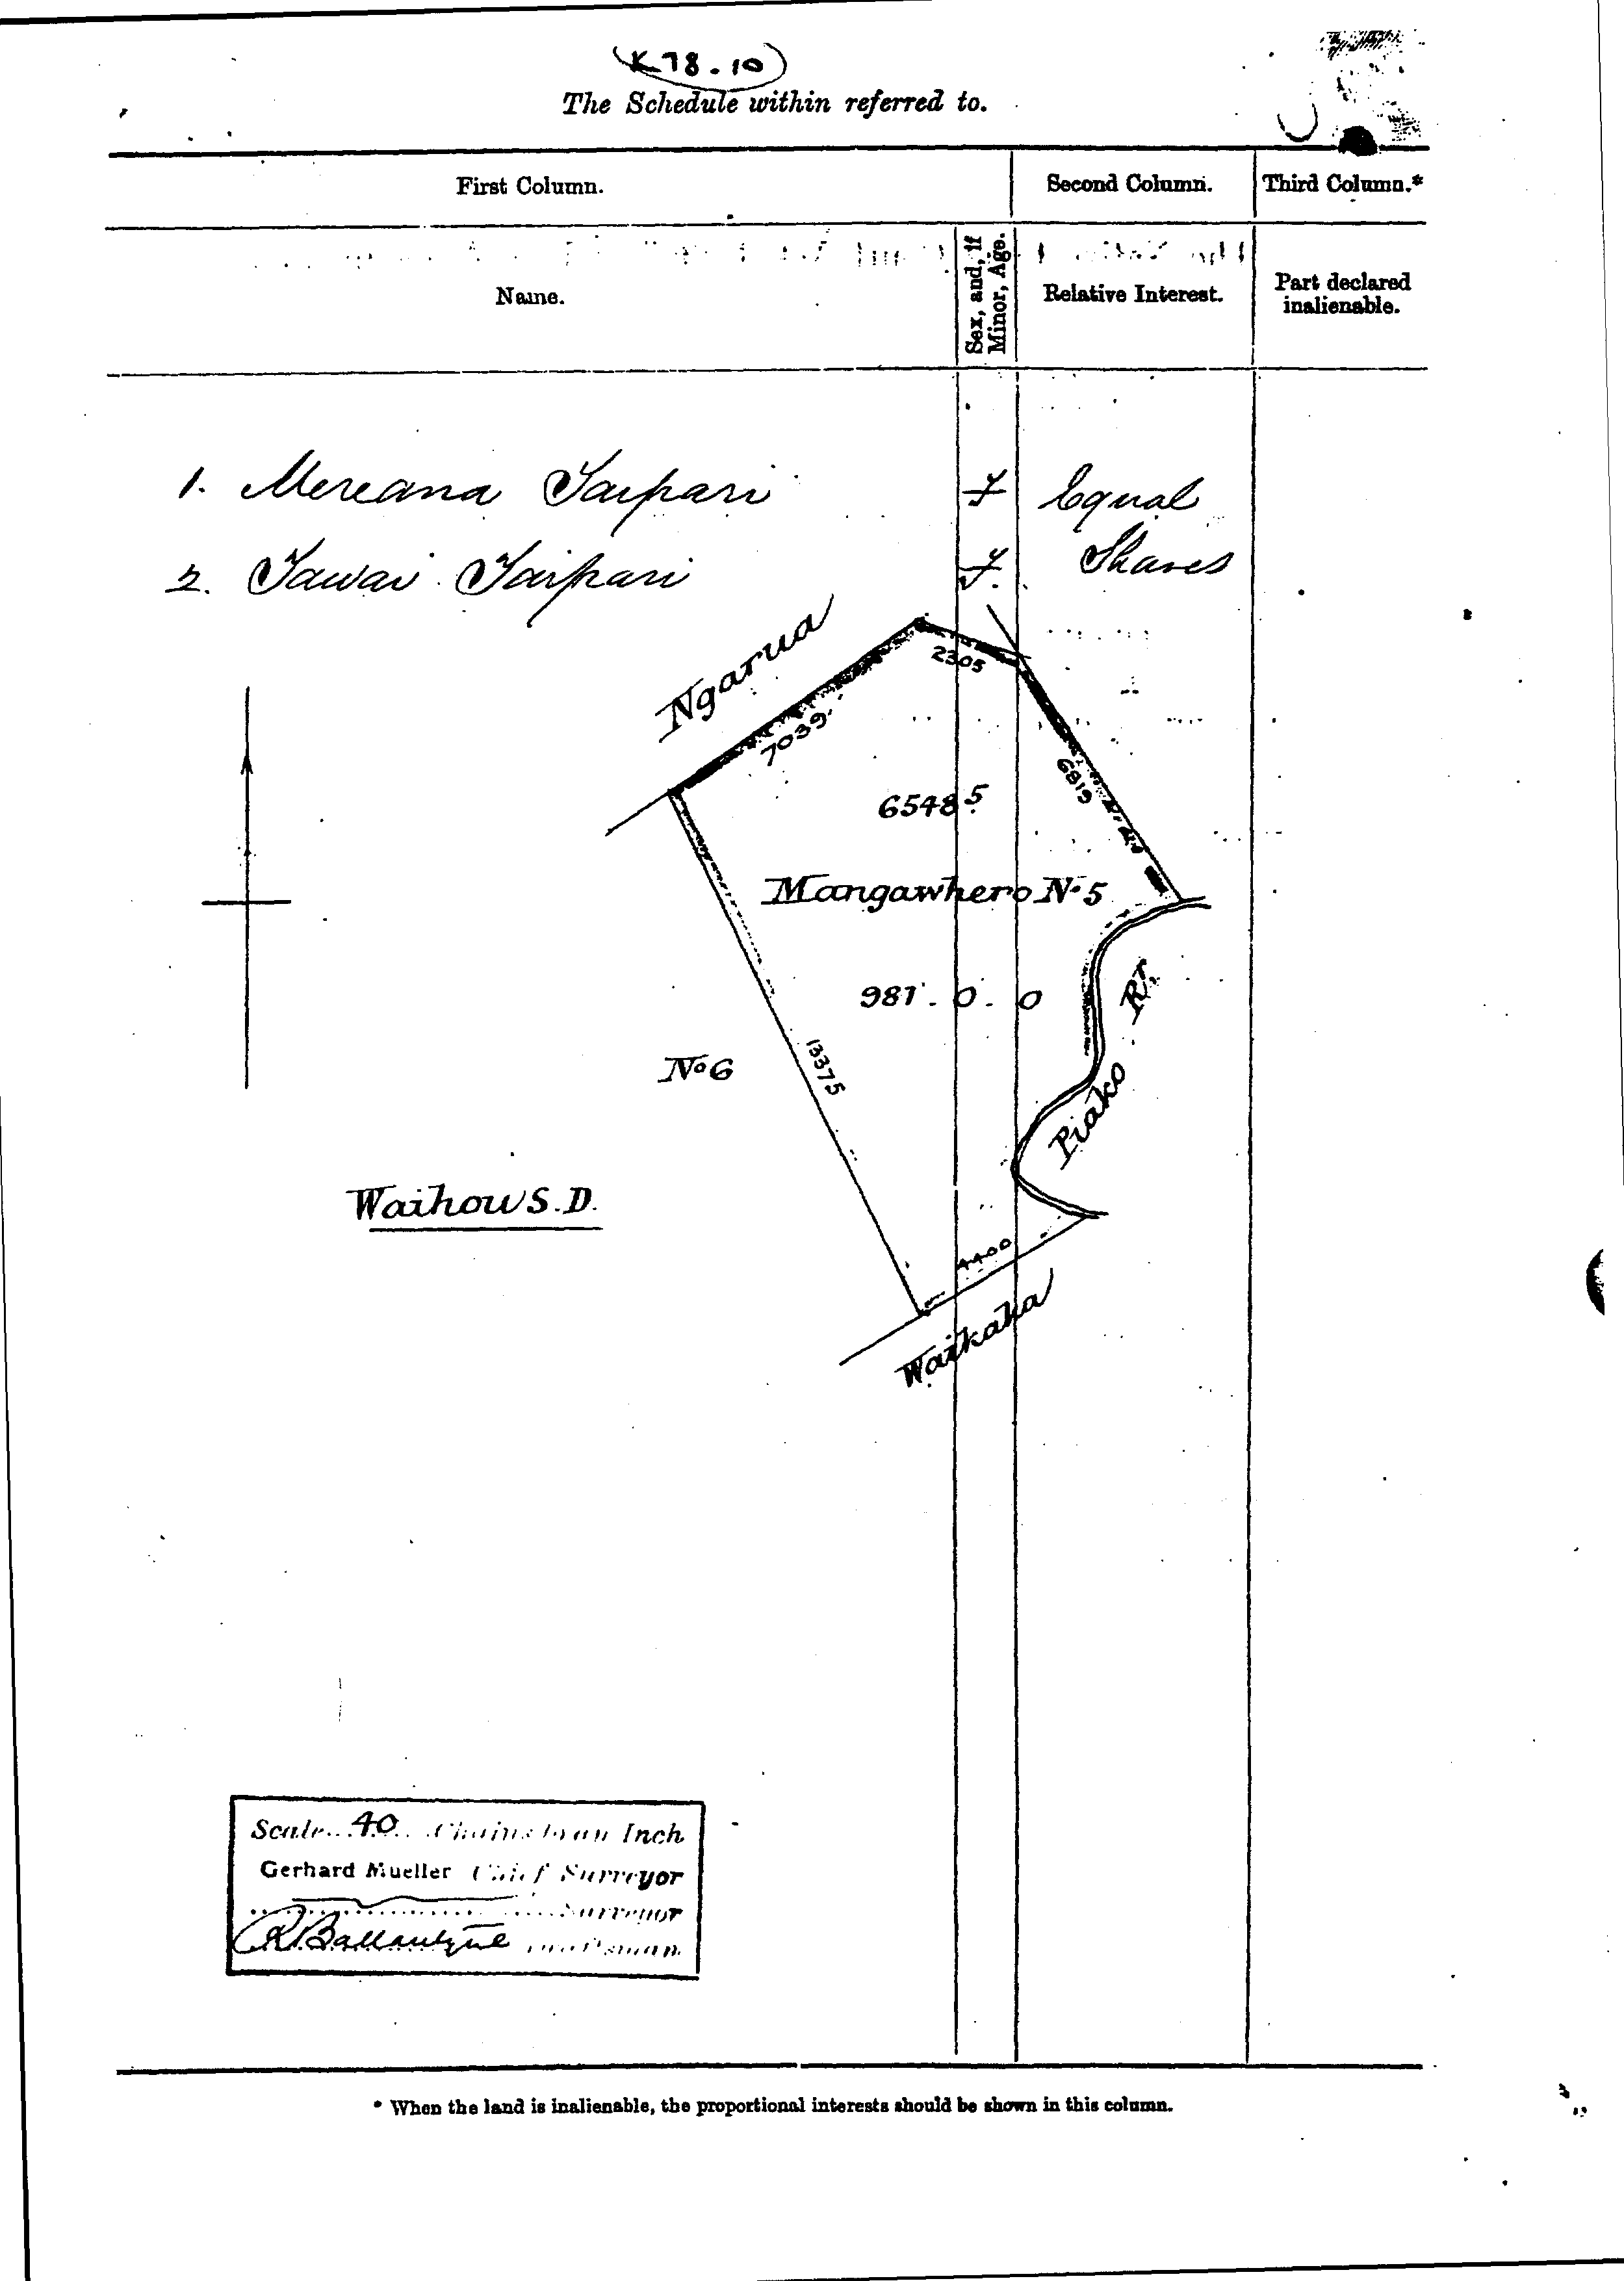 K78.10
The Schedule within referred to.
First Column.
Second Column.
Third Column.*
Name.
Sex, and, if Minor, Age.
Relative Interest.
Part declared inalienable.
1. Mereana Taipari F Equal
2. Tawai Taipari F. Shares
Ngarua
2305
7039
6819
6548 5
Mangawhero No. 5
981. 0. 0
Piako Rr.
No 6
13375
Waihou S. D.
4400
Waikaka
Scale 40 Chains to an Inch
Gerhard Mueller Chief Surveyor
Surveyor
R. Ballantyne Draftsman
* When the land is inalienable, the proportional interests should be shown in this column.